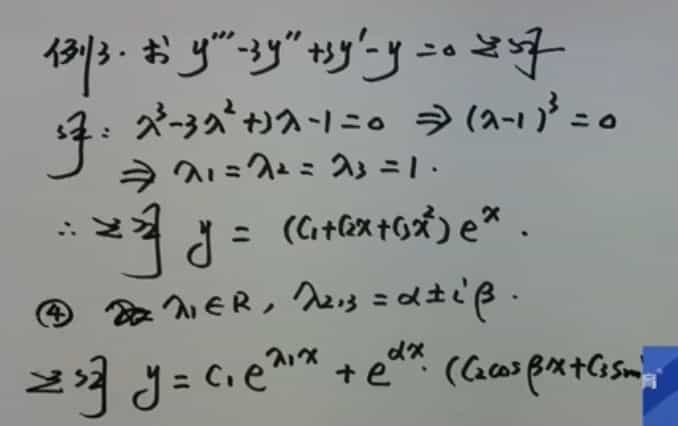 例3. 求 y''' - 3y'' + 3y' - y = 0 之解
解: λ³ - 3λ² + 3λ - 1 = 0 ⇒ (λ-1)³ = 0
⇒ λ₁ = λ₂ = λ₃ = 1.
∴ 之解 y = (C₁+C₂x+C₃x²)eˣ.
④ λ₁∈R, λ₂,₃ = α ± iβ.
之解 y = C₁e^{λ₁x} + e^{αx}·(C₂cosβx + C₃sin
育